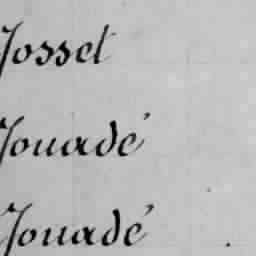 Josset
Jouadé
Jouadé